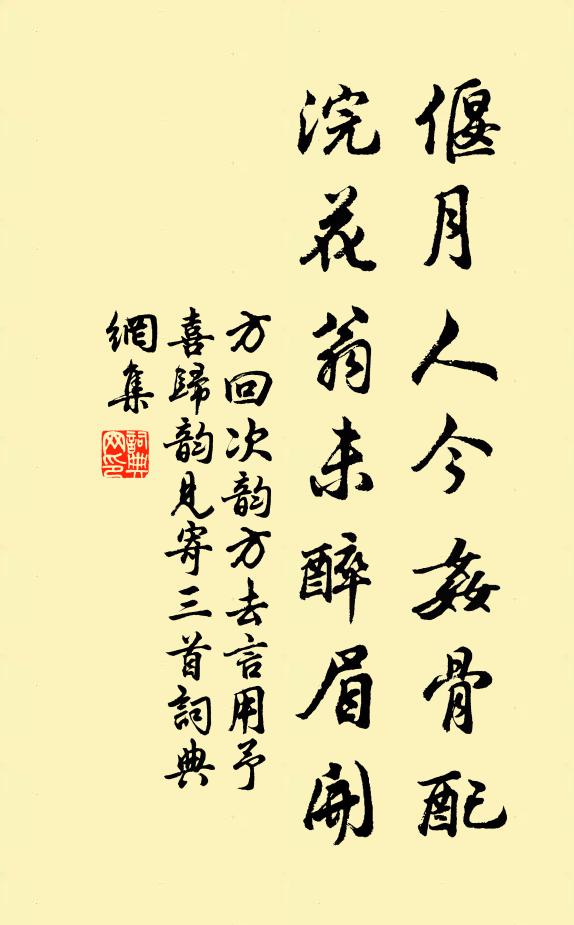 偃月人今姦骨配
浣花翁未醉眉開
方回次韵方去言用予
喜歸韵見寄三首詞典
網集
詞典
网印